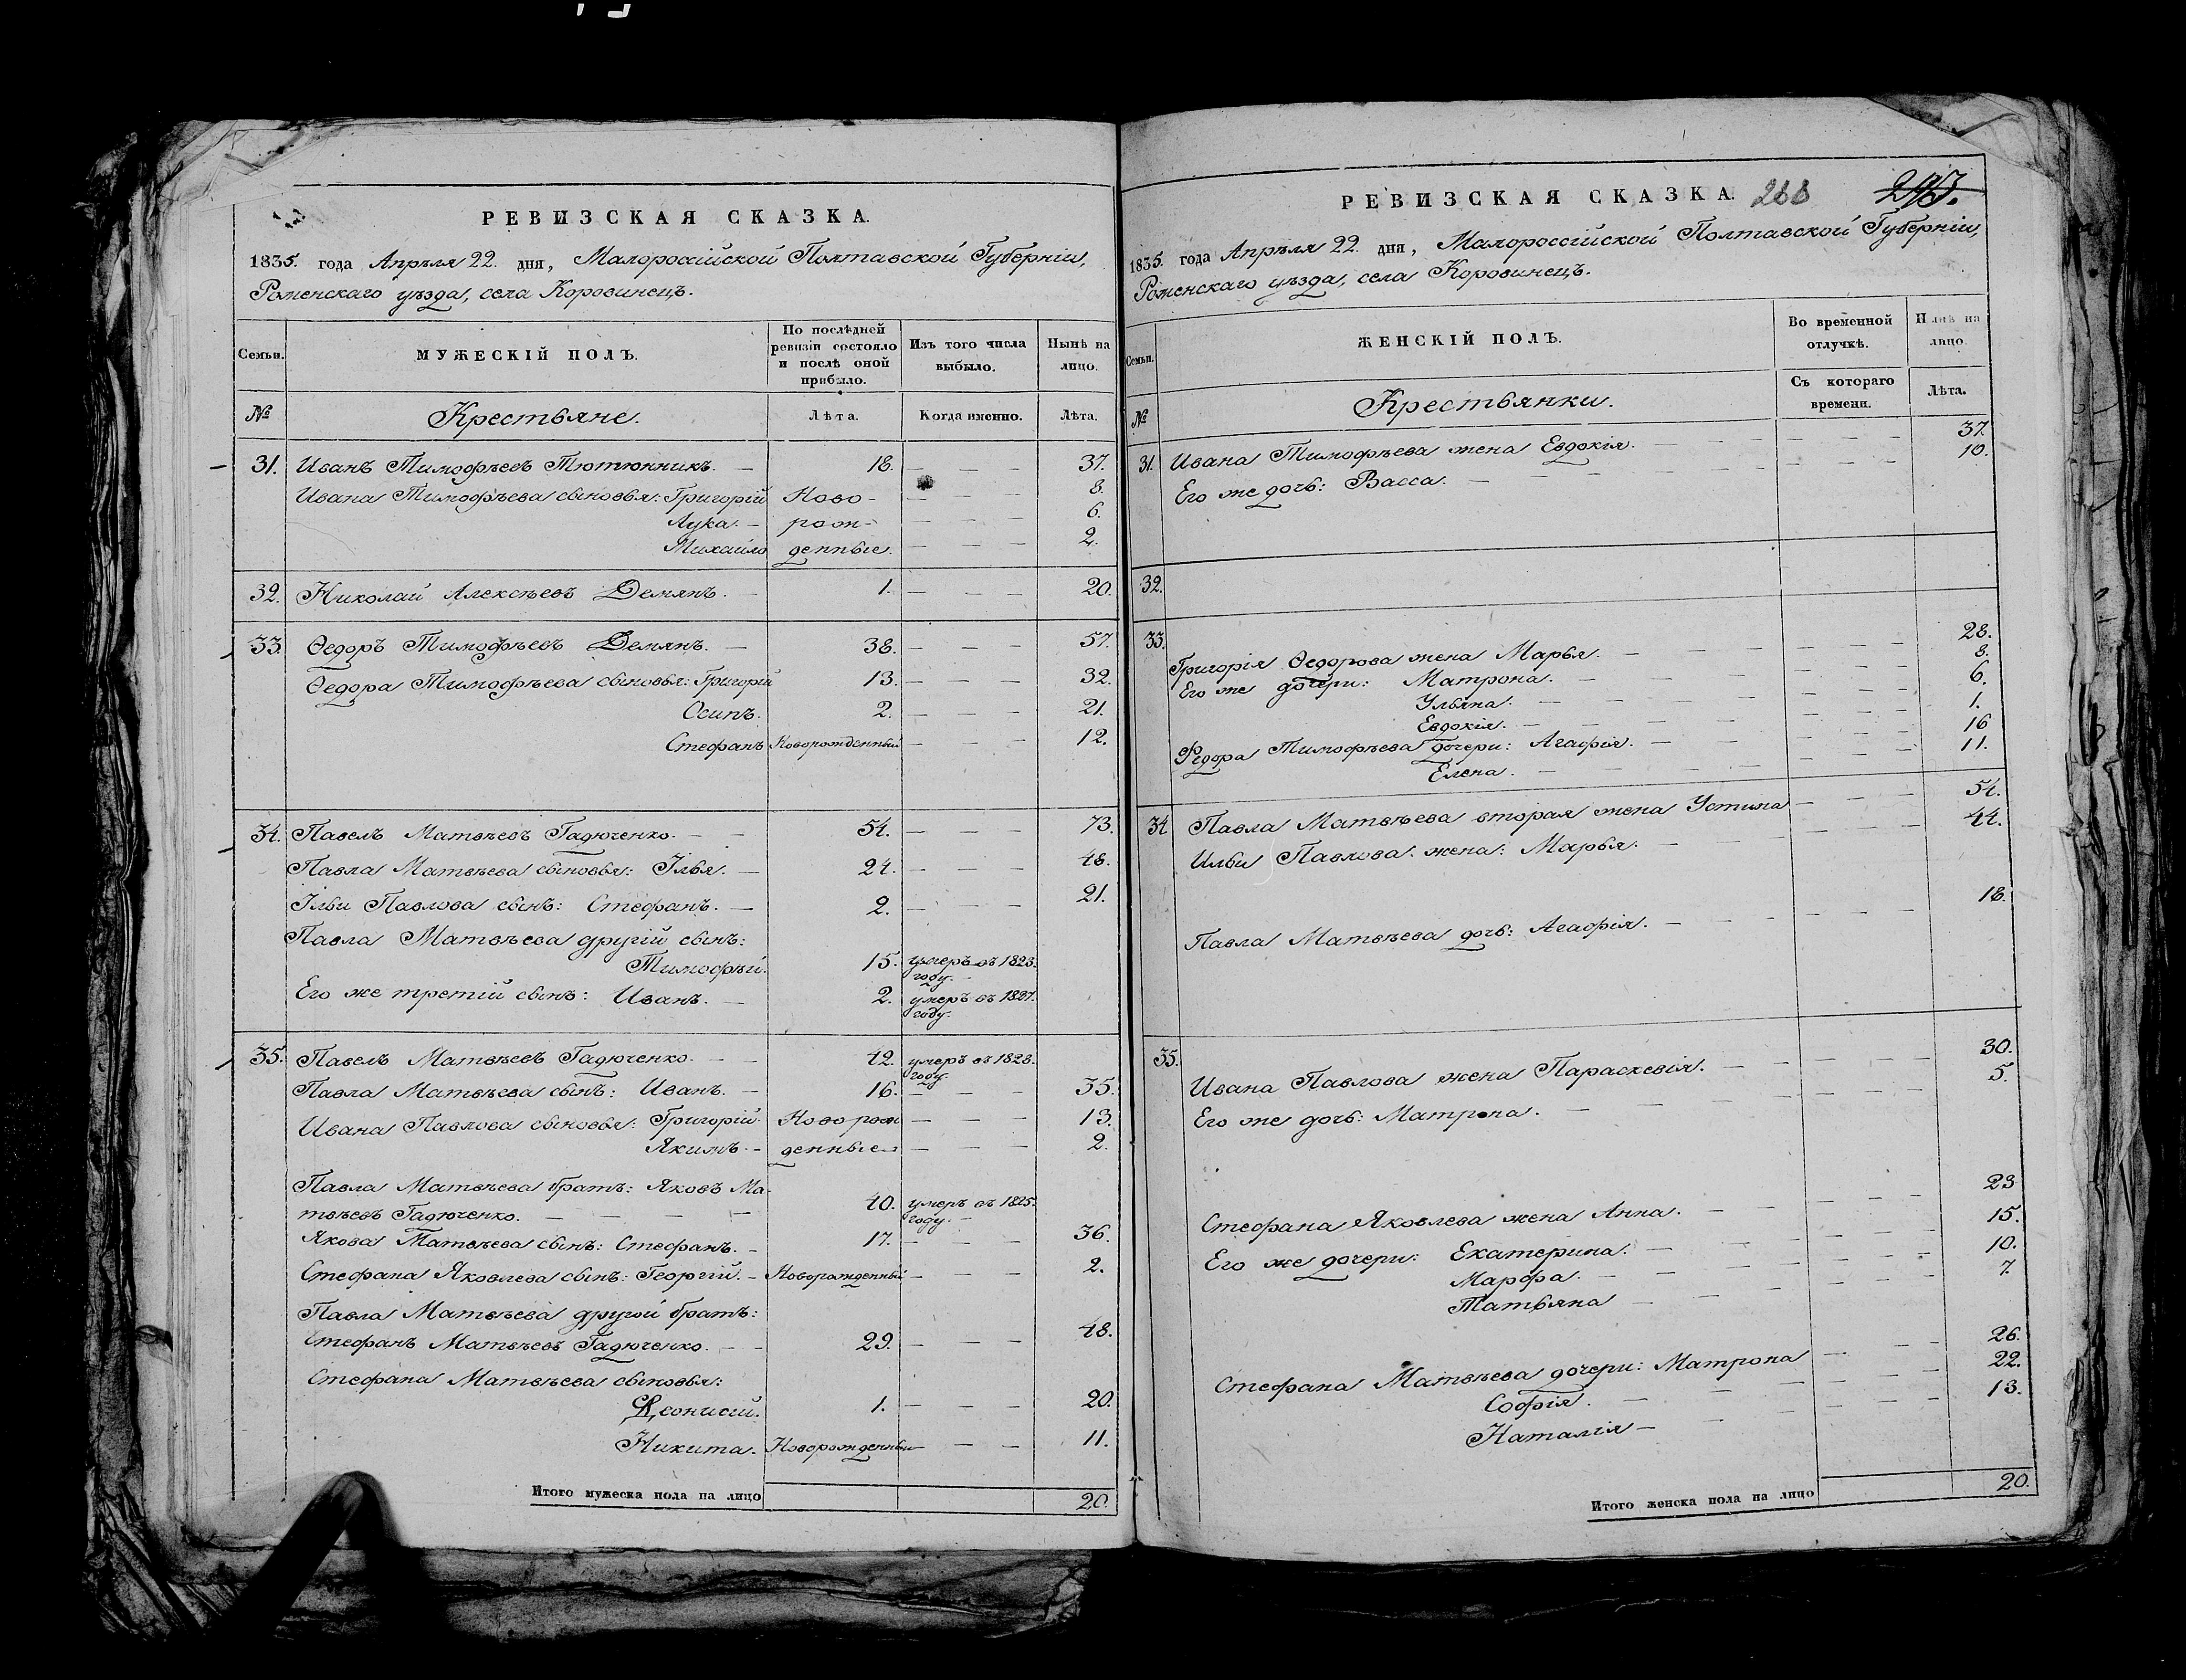 РЕВИЗСКАЯ СКАЗКА.
1835. года Апрѣля 22. дня, Малоросійской Полтавской Губерніи,
Роменскаго уѣзда, села Коровинецъ.
Семьи.
МУЖЕСКІЙ ПОЛЪ.
По послѣдней
ревизіи состояло
и послѣ оной
прибыло.
Изъ того числа
выбыло.
Нынѣ на
лицо.
№
Крестьяне.
Лѣта.
Когда именно.
Лѣта.
31. Иванъ Тимофѣевъ Тютюнникъ. — 18. — — — 37.
Ивана Тимофѣева сыновья: Григорій Ново- — — — 8.
Лука. — рож- — — — 6.
Михайло денные. — — — 2.
32. Николай Алексѣевъ Демянъ. — 1. — — — 20.
33. Ѳедоръ Тимофѣевъ Демянъ. — 38. — — — 57.
Ѳедора Тимофѣева сыновья: Григорій 13. — — — 32.
Осипъ. 2. — — — 21.
Стефанъ Новорожденный — — — 12.
34. Павелъ Матвѣевъ Гадюченко. — — 54. — — 73.
Павла Матвѣева сыновья: Ілья. — 24. — — — 48.
Ільи Павлова сынъ: Стефанъ. — 2. — — — 21.
Павла Матвѣева другій сынъ:
Тимофѣй. 15. умеръ въ 1823.
году. —
Его же третій сынъ: Иванъ. — 2. умеръ въ 1827.
году.
35. Павелъ Матвѣевъ Гадюченко. — — 42. умеръ въ 1828.
году.
Павла Матвѣева сынъ: Иванъ. — 16. — — — 35.
Ивана Павлова сыновья: Григорій. Новорож — — — 13.
Якимъ. — денные — — — 2.
Павла Матвѣева братъ: Яковъ Ма-
твѣевъ Гадюченко. — — — — 40. умеръ въ 1825.
году. —
Якова Матвѣева сынъ: Стефанъ. — 17. — — — 36.
Стефана Яковлева сынъ: Георгій. — Новорожденный — — — 2.
Павла Матвѣева другой братъ:
Стефанъ Матвѣевъ Гадюченко. — — 29. — 48.
Стефана Матвѣева сыновья:
Деонисій. 1. — — — 20.
Никита. Новорожденный — — — 11.
Итого мужеска пола на лицо 20.
РЕВИЗСКАЯ СКАЗКА. 266
1835. года Апрѣля 22. дня, Малороссійской Полтавской Губерніи,
Роменскаго уѣзда, села Коровинецъ.
Семьи.
ЖЕНСКІЙ ПОЛЪ.
Во временной
отлучкѣ.
Нынѣ на
лицо.
№
Крестьянки.
Съ котораго
времени.
Лѣта.
31. Ивана Тимофѣева жена Евдокія. — — — 37.
Его же дочь: Васса. — — — 10.
32.
33. Григорія Ѳедорова жена Марья. — — — 28.
Его же дочери: Матрона. — — — 8.
Ульяна. — — — 6.
Евдокія. — — — 1.
Ѳедора Тимофѣева дочери: Агафія. — — — 16
Елена. — — — 11.
34 Павла Матвѣева вторая жена Устина — — — 54.
Ильи Павлова жена: Марья. — — — 44.
Павла Матвѣева дочь: Агафія. — — — 18.
35. Ивана Павлова жена Параскевія. — — — 30.
Его же дочь: Матрона. — — — 5.
Стефана Яковлева жена Анна. — — — 23
Его же дочери: Екатерина. — — — 15.
Марфа. — — — 10.
Татьяна — — — 7.
Стефана Матвѣева дочери: Матрона — — — 26.
Софія. — — — 22.
Наталія — — — 13.
Итого женска пола на лицо 20.